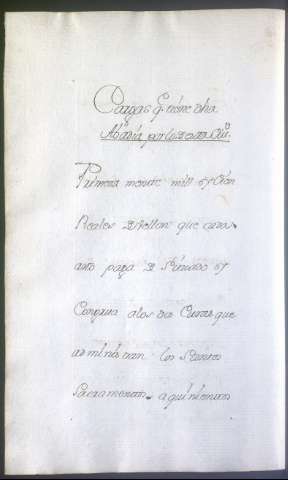 Cargas q.e tiene dha
Abadia por lo
Primera mente mill y Cien
Reales de Vellon que cada
año paga de Situado y
Congrua a los dos Curas que
administran los Santos
Sacramentos a quinientos